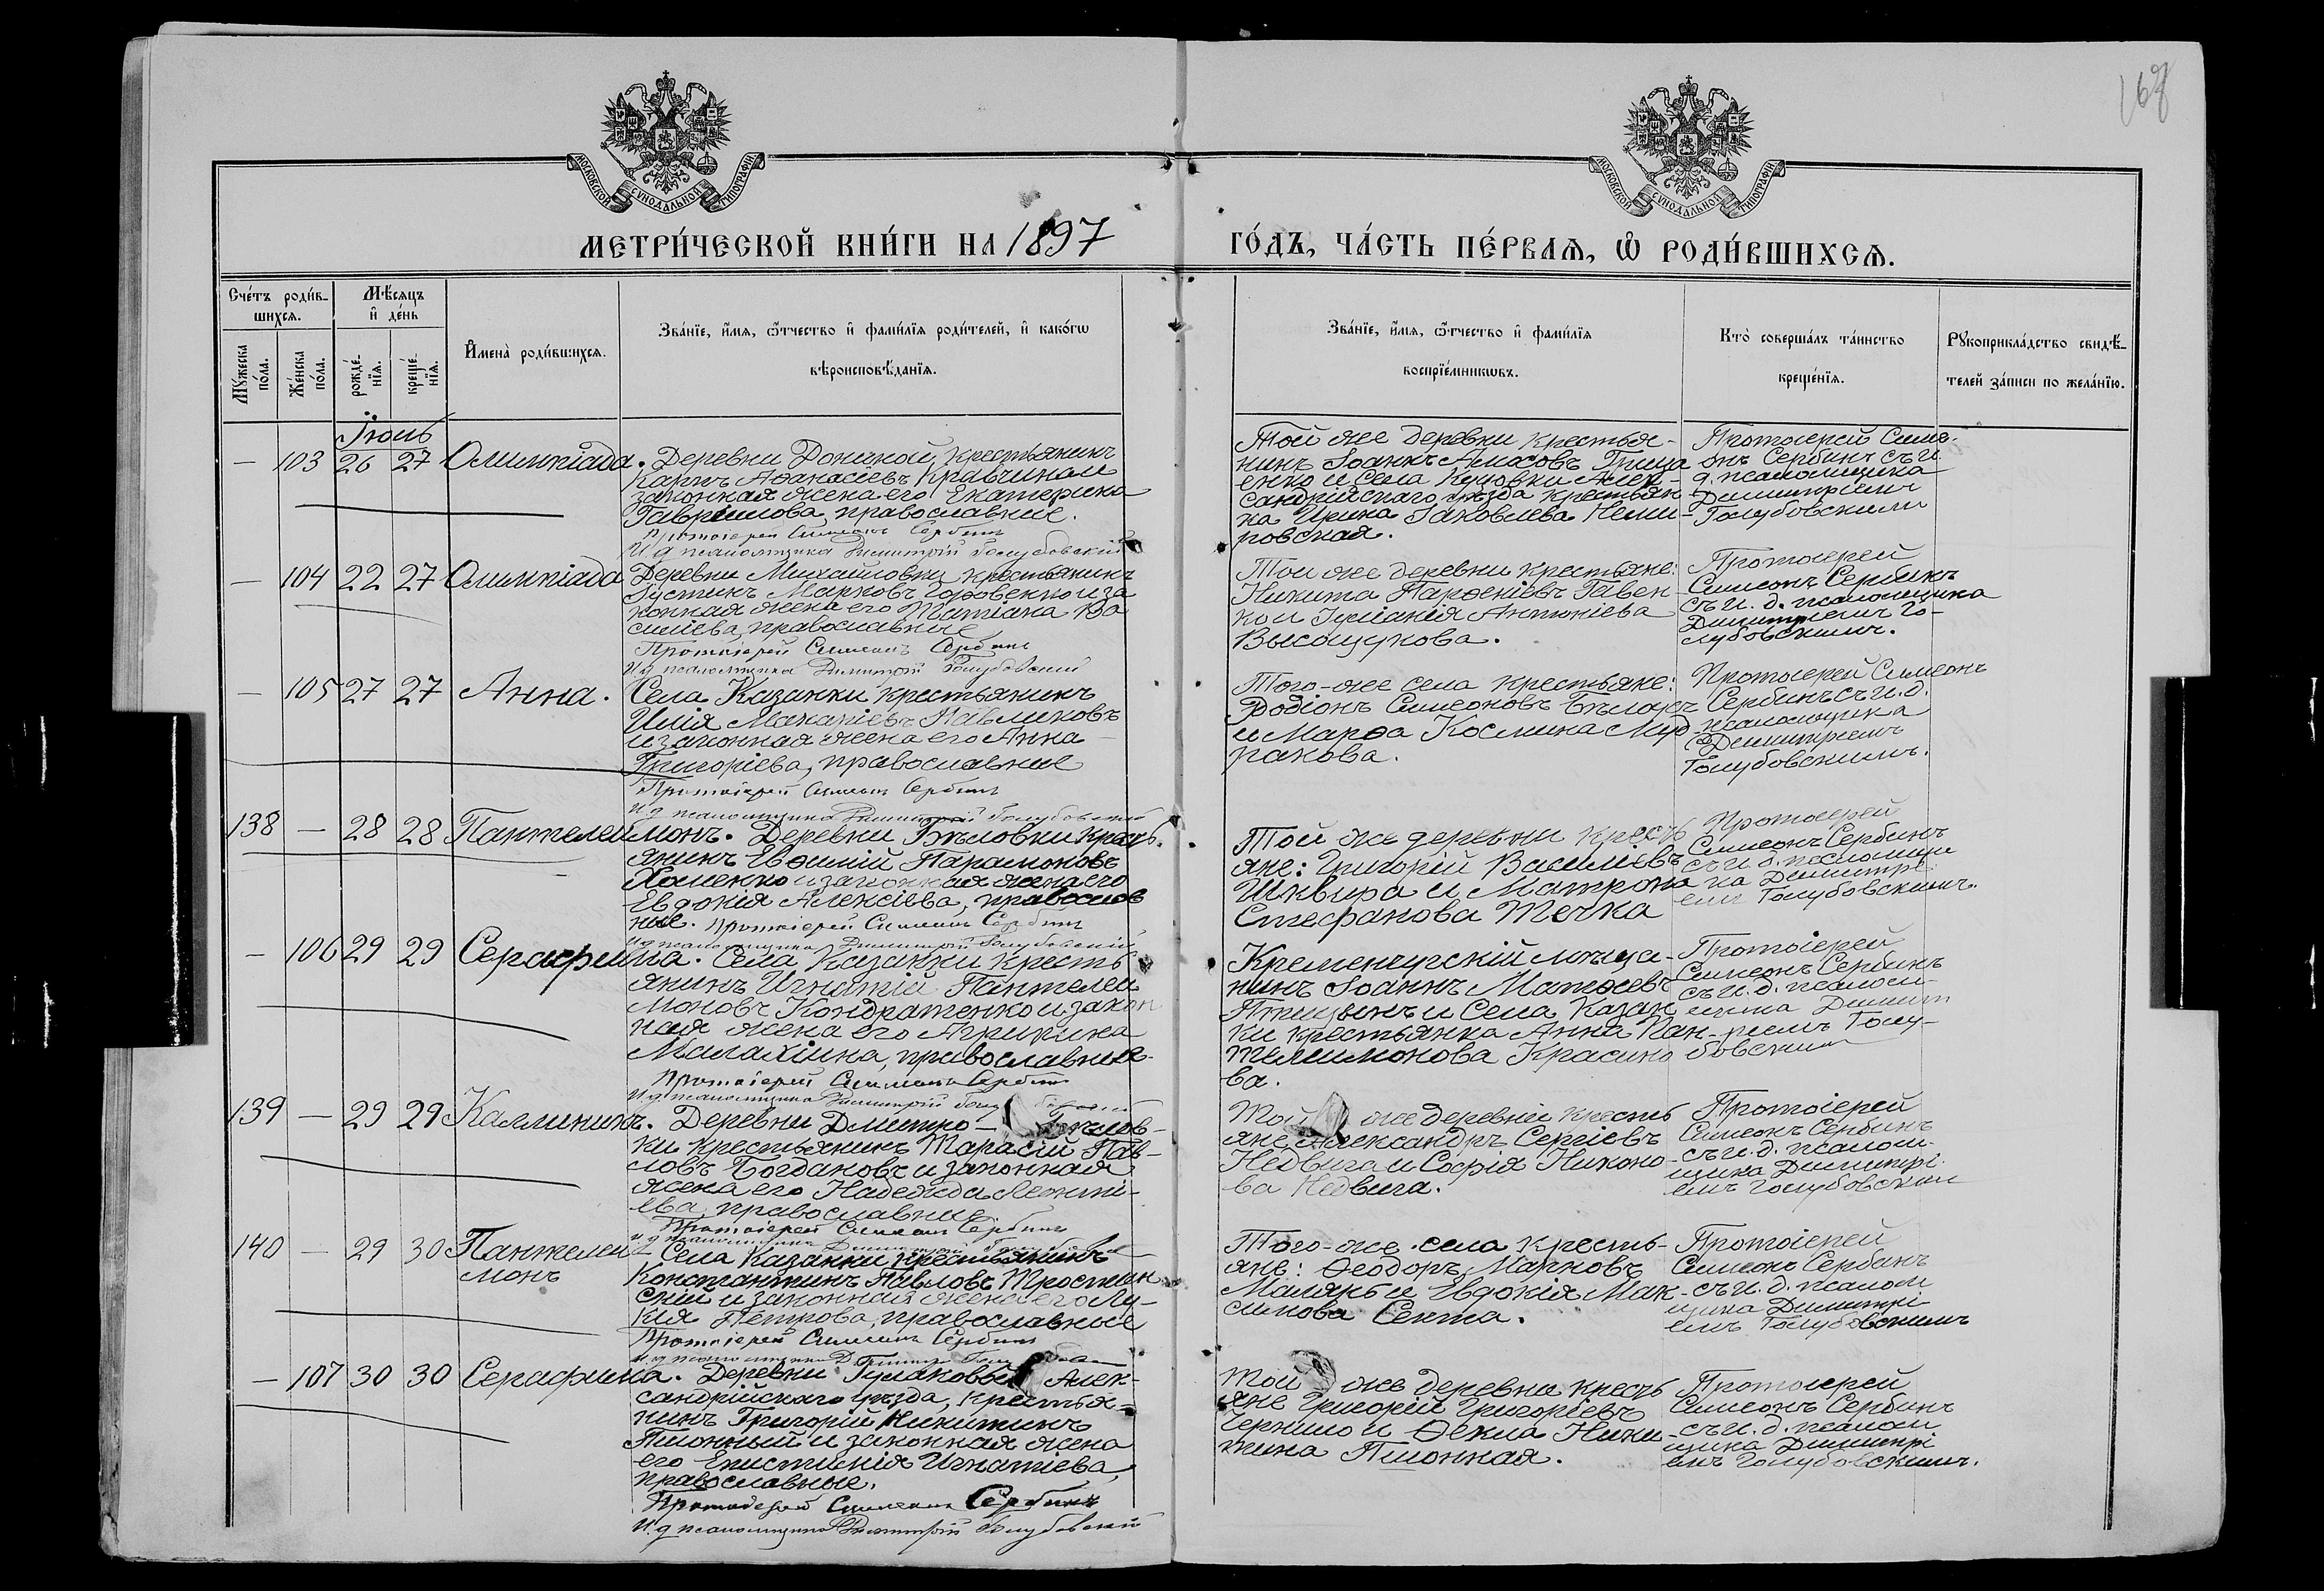 168
МОСКОВСКОЙ СѴНОДАЛЬНОЙ ТИПОГРАФІИ
МОСКОВСКОЙ СѴНОДАЛЬНОЙ ТИПОГРАФІИ
МЕТРИ́ЧЕСКОЙ КНИ́ГИ НА 1897
ГО́ДЪ, ЧА́СТЬ ПЕ́РВАѦ, Ѡ РОДИ́ВШИХСѦ.
Сче́тъ роди́в-
шихсѧ.
Мꙋ́жеска по́ла.
Же́нска по́ла.
Мѣ́сяцъ
и҆ де́нь
рожде́-
нїѧ.
креще́-
нїѧ.
И҆мена̀ роди́вшихсѧ.
Зва́нїе, и҆́мѧ, ѻ҆́тчество и҆ фами́лїѧ роди́телей, и҆ како́гѡ
вѣроисповѣ́данїѧ.
Зва́нїе, и҆́мѧ, ѻ҆́тчество и҆ фами́лїѧ
воспрїе́мникѡвъ.
Кто̀ соверша́лъ та́инство
креще́нїѧ.
Рꙋкоприкла́дство свидѣ́-
телей за́писи по жела́нїю.
Іюль
— 103 26 27 Олимпіада.
Деревни Дониной крестьянинъ
Карпъ Аѳанасіевъ Кравчина и
законная жена его Екатерина
Гавріилова, православные.
Протоіерей Симеонъ Сербинъ
И. д. псаломщика Димитрій Голубовскій
Той же деревни крестья-
нинъ Іоаннъ Амосовъ Грица
енко и села Куцовки Алек-
сандрійскаго уѣзда крестьян-
ка Ирина Іаковлева Неми-
ровская.
Протоіерей Симе-
онъ Сербинъ съ И.
д. псаломщика
Димитріемъ
Голубовскимъ
— 104 22 27 Олимпіада
Деревни Михайловки крестьянинъ
Іустинъ Марковъ Горовенко и за
конная жена его Татіана Ва
силіева, православные
Протоіерей Симеонъ Сербинъ
И. д. псаломщика Димитрій Голубовскій
Той же деревни крестьяне:
Никита Парѳеніевъ Гавен
ко и Іуліанія Антоніева
Высоцукова.
Протоіерей
Симеонъ Сербинъ
съ И. д. псаломщика
Димитріемъ Го-
лубовскимъ.
— 105 27 27 Анна.
Села Казанки крестьянинъ
Илія Макаріевъ Павликовъ
и законная жена его Анна
Григоріева, православные
Протоіерей Симеонъ Сербинъ
И. д. псаломщика Димитрій Голубовскій
Того-же села крестьяне:
Родіонъ Симеоновъ
и Марѳа Космина Муд-
ракова.
Протоіерей Симеонъ
Сербинъ съ И. д.
псаломщика
Димитріемъ
Голубовскимъ.
138 — 28 28 Пантелеймонъ.
Деревни Бѣловки кресть.
янинъ Евѳимій Парамоновъ
Хоменко и законная жена его
Евдокія Алексіева, православ
ные. Протоіерей Симеонъ Сербинъ
И. д. псаломщика Димитрій Голубовскій
Той же деревни кресть
яне: Григорій Василіевъ
Шквира и Матрона
Стефанова Течка
Протоіерей
Симеонъ Сербинъ
съ И. д. псаломщи
ка Димитрі
емъ Голубовскимъ.
— 106 29 29 Серафима.
Села Казанки кресть
янинъ Игнатій Пантелеи
моновъ Кондратенко и закон
ная жена его Агрипина
Малахіина, православные.
Протоіерей Симеонъ Сербинъ
И. д. псаломщика Димитрій Голубовскій
Кременчугскій мѣща-
нинъ Іоаннъ Матѳеевъ
Птицынъ и Села Казан
ки крестьянка Анна Пан-
телеимонова Красино
ва.
Протоіерей
Симеонъ Сербинъ
съ И. д. псалом-
щика Димит
ріемъ Голу-
бовскимъ
139 — 29 29 Каллиникъ.
Деревни Дмитро- Бѣлов-
ки крестьянинъ Тарасій Пав-
ловъ Богдановъ и законная
жена его Надежда Леонті-
ева, православные.
Протоіерей Симеонъ Сербинъ
И. д. псаломщика Димитрій Голубовскій
Той же деревни кресть
яне Александръ Сергіевъ
Недвига и Софія Никоно-
ва Недвига.
Протоіерей
Симеонъ Сербинъ
съ И. д. псалом-
щика Димитрі-
емъ Голубовским
140 — 29 30 Пантелеи-
монъ
Села Казанки крестьянинъ
Константинъ Павловъ Тростян
скій и законная жена его Лу-
кія Петрова, православные
Протоіерей Симеонъ Сербинъ
И. д. псаломщика Димитрій Голубовскій
Того-же села кресть-
яне: Ѳеодоръ Марковъ
Маляръ и Евдокія Мак-
симова Секта.
Протоіерей
Симеонъ Сербинъ
съ И. д. псалом
щика Димитрі
емъ Голубовскимъ
— 107 30 30 Серафима.
Деревни Гулаковой Алек-
сандрійскаго уѣзда, крестья-
нинъ Григорій Никитинъ
Піонный и законная жена
его Епистимія Игнатіева,
православные.
Протоіерей Симеонъ Сербинъ
И. д. псаломщика Димитрій Голубовскій
Той же деревни кресть
яне Григорій Григоріевъ
Чернило и Ѳекла Ники-
тина Піонная.
Протоіерей
Симеонъ Сербинъ
съ И. д. псалом
щика Димитрі
емъ Голубовскимъ.